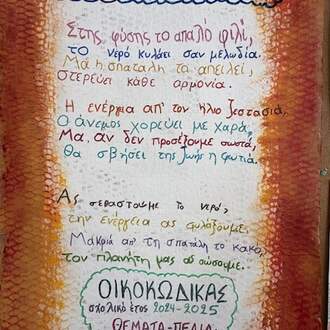 Στης φύσης το απαλό φιλί,
το νερό κυλάει σαν μελωδία.
Μα η σπατάλη το απειλεί,
στερεύει κάθε αρμονία.
Η ενέργεια απ' τον ήλιο ζεστασιά,
Ο άνεμος χορεύει με χαρά,
Μα, αν δεν προσέξουμε σωστά,
θα σβήσει της ζωής η φωτιά.
Ας σεβαστούμε το νερό,
την ενέργεια ας φυλάξουμε.
Μακριά απ' τη σπατάλη το κακό,
τον πλανήτη μας ας σώσουμε.
ΟΙΚΟΚΩΔΙΚΑΣ
σχολικό έτος 2024-2025
ΘΕΜΑΤΑ-ΠΕΔΙΑ